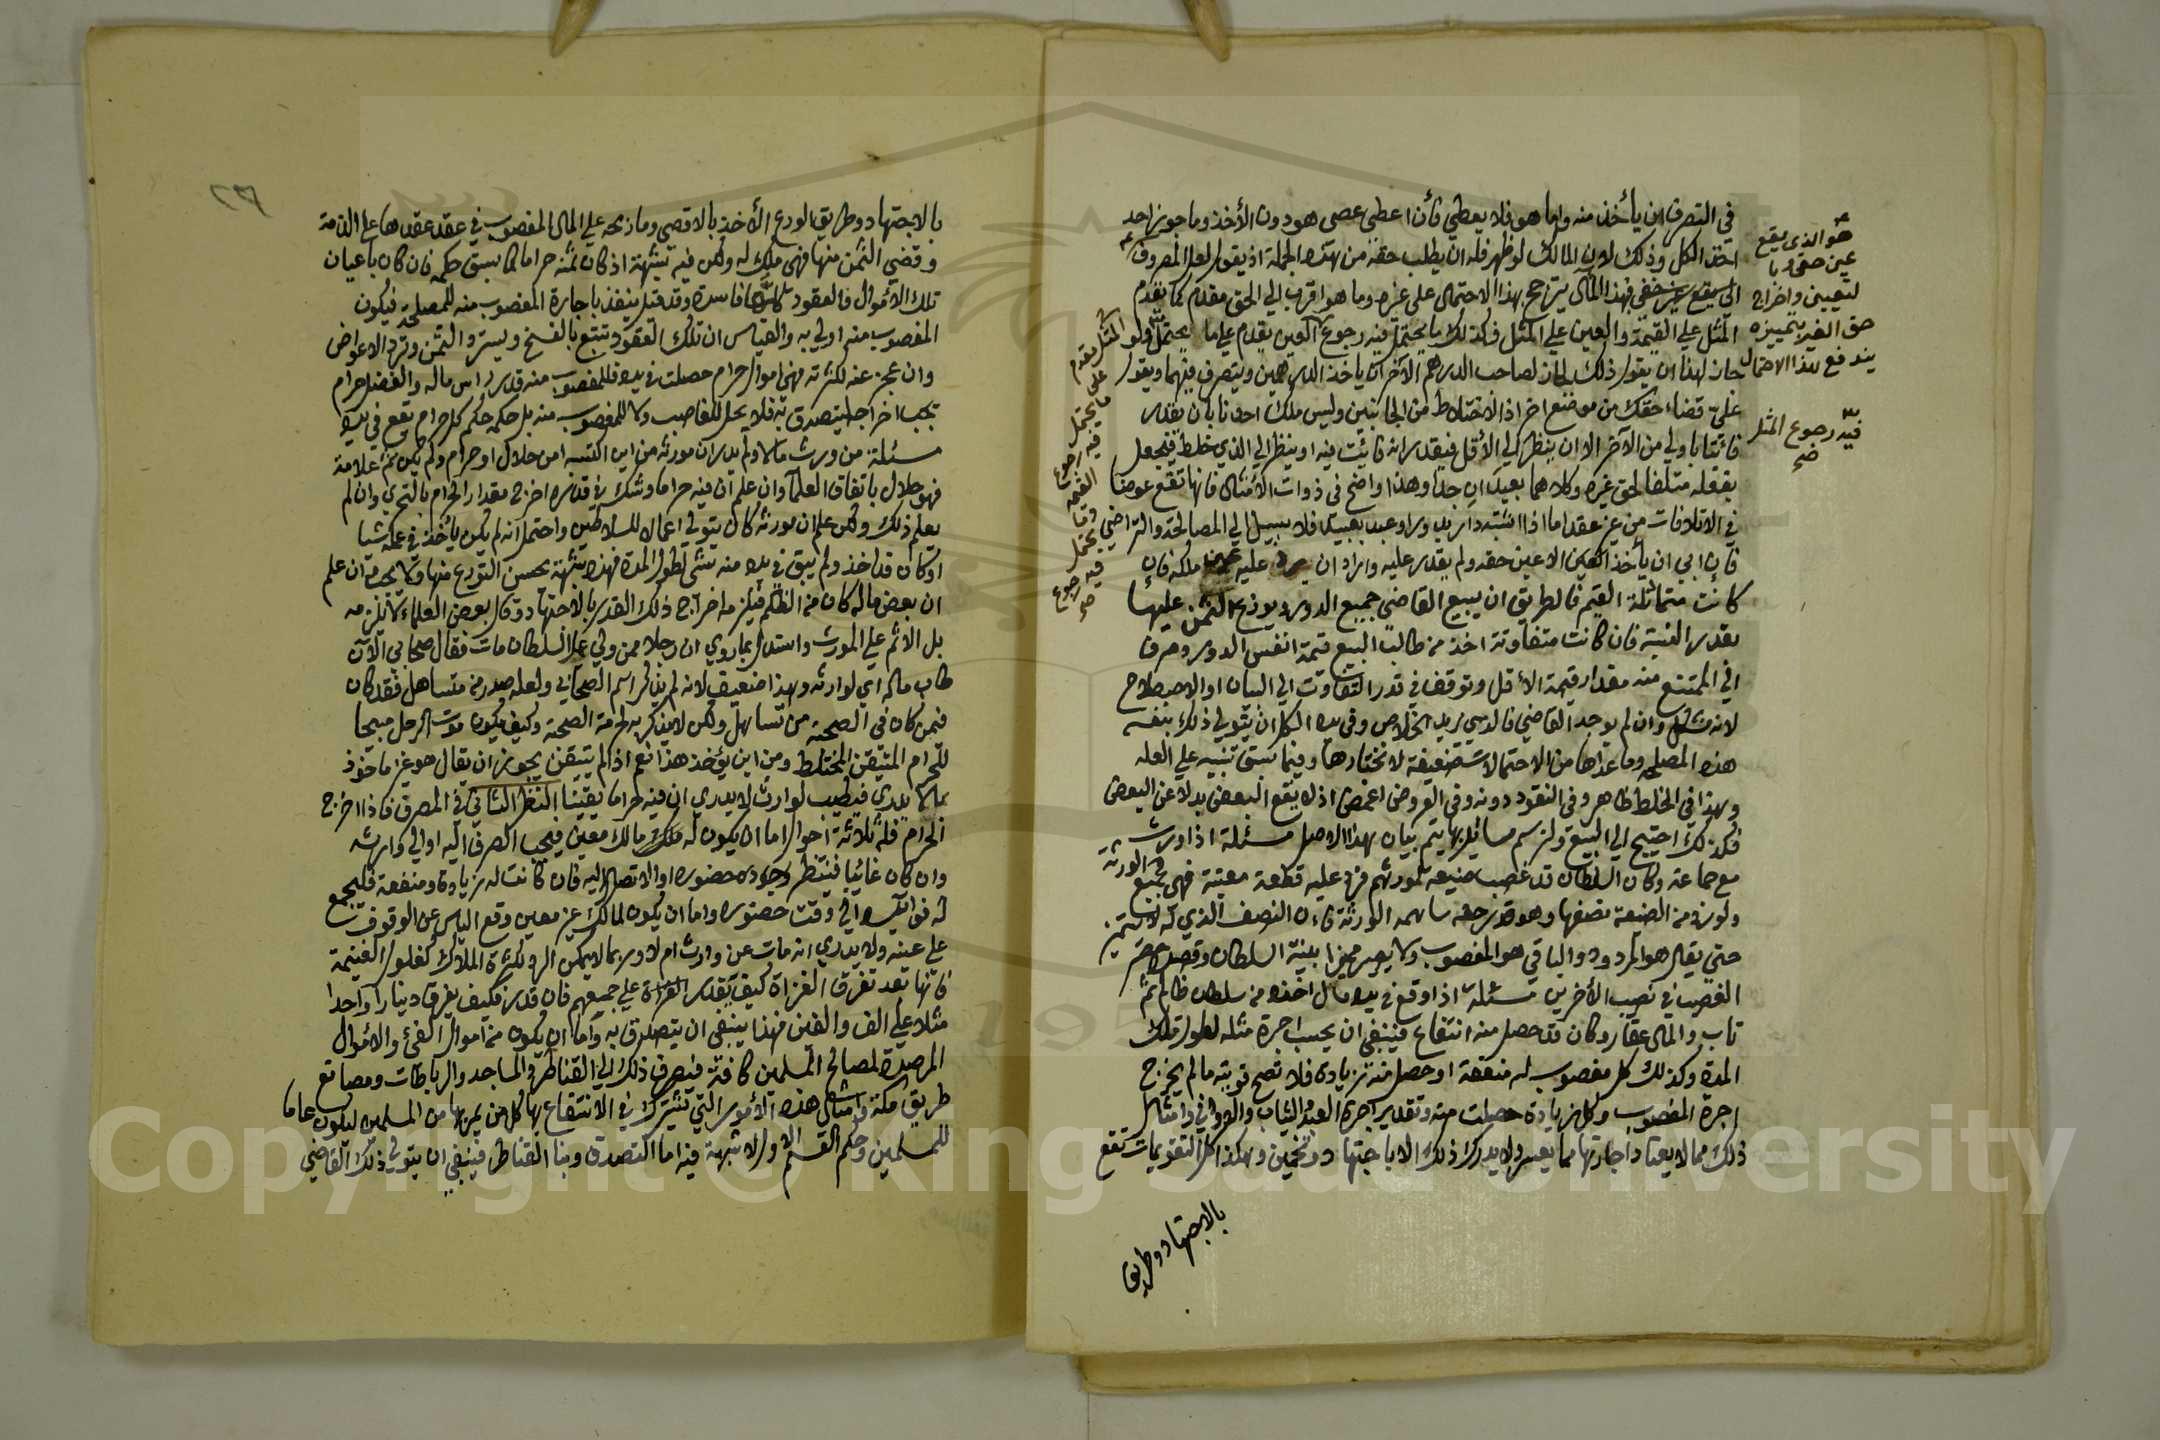 في التصرف ان يأخذ منه واما هو فلا يعطي فأن اعطى عصى هو دون الأخذ وما جوز احد
اخذ الكل وذلك لان المالك لو ظهر فله ان يطلب حقه من هذه الجملة اذ يقول لعل المصروف
الي يقع عين حقي فهذا المال يترجح بهذا الاحتمال على غيره وما هو اقرب الي الحق مقدم كما يقدم
المثل علي القيمة والعين علي المثل فكذلك ما يحتمل فيه رجوع العين يقدم علي ما يحتمل ولو
جاز لهذا ان يقول ذلك لجاز لصاحب الدرهم الآخر ان ياخذ الدرهمين ويتصرف فيهما ويقول
عليّ قضاء حقك من موضع اخر اذ الاختلاط من الجانبين وليس ملك احدنا بان يقدر
فائتا باولي من الآخر الا ان ينظر الي الأقل فيقدر انه فائت فيه او ينظر الي الذي خلط فيجعل
بفعله متلفا لحق غيره وكلاهما بعيدان جدا وهذا واضح في ذوات الأمثال فانها تقع عوضا
في الاتلافات من غير عقد اما اذا اشتبه دار بدور او عبد بعبيد فلا سبيل الي المصالحة والتراضي
فان ابي ان يأخذ العين الا عين حقه ولم يقدر عليه واراد ان عليه ملكه فان
كانت متماثلة القيم فالطريق ان يبيع القاضي جميع الدور ويوزع الثمن عليها
بقدر النسبة فان كانت متفاوتة اخذ من طالب البيع قيمة انفس الدور وصرف
الي الممتنع منه مقدار قيمة الأقل وتوقف في قدر التفاوت الي البيان او الاصطلاح
لانه مشكل وان لم يوجد القاضي فالذي يريد الخلاص وفي يده الكل ان يتولي ذلك بنفسه
هذه المصلحة وما عداها من الاحتمالات ضعيفة لا نختارها وفيما سبق تنبيه علي العلة
وهذا في الخلط ظاهر وفي النقود دونه وفي العروض اغمض اذ لا يقع البعض بدلا عن البعض
فلذلك احتيج الي البيع ولنرسم مسائل بها يتم بيان هذا الاصل مسئلة اذا ورث
مع جماعة وكان السلطان قد غصب ضيعة لمورثهم فرد عليه قطعة معينة فهي لجميع الورثة
ولو رد من الضيعة نصفها وهو قدر حقه ساهمه الورثة فان النصف الذي له لا يتميز
حتى يقال هو المردود والباقي هو المغصوب ولا يصير مميزا بنية السلطان وقصده حصر
الغصب في نصيب الأخرين مسئلة اذا وقع في يده مال اخذه من سلطان ظالم ثم
تاب والمال عقار وكان قد حصل منه انتفاع فينبغي ان يحسب اجرة مثله لطول تلك
المدة وكذلك كل مغصوب له منفعة او حصل منه زيادة فلا تصح توبته ما لم يخرج
اجرة المغصوب وكل زيادة حصلت منه وتقدير اجرة العبد والثياب والاواني وامثال
ذلك مما لا يعتاد اجارتها مما يعسر ولا يدرك ذلك الا باجتهاد وتخمين وهكذا كل التقويمات تقع
بالاجتهاد وطريق
هو الذي يقع
عين حقي او ما
لتعيين واخراج
حق الغير بتمييزه
يندفع هذا الاحتمال
فيه رجوع المثل
صح
المثل مقدم
على ما يحتمل
فيه رجوع
القيمة
وما يحتمل
فيه رجوع
صح
بالاجتهاد وطريق الورع الأخذ بالاقصي وما ربحه علي المال المغصوب في عقد عقدها علي الذمة
وقضي الثمن منها فهي ملك له ولكن فيه شبهة اذ كان ثمنه حراما كما سبق حكمه فان كان باعيان
تلك الاموال فالعقود كلها فاسدة وقد قيل ينفذ باجازة المغصوب منه للمصلحة فيكون
المغصوب منه اولي به والقياس ان تلك العقود تتبع بالفسخ ويسترد الثمن وترد الاعواض
وان عجز عنه لكثرته فهي اموال حرام حصلت في يده فللمغصوب منه قدر راس ماله والفضل حرام
يجب اخراجه ليتصدق به فلا يحل للغاصب ولا للمغصوب منه بل حكمه حكم كل حرام يقع في يده
مسئلة من ورث مالا ولم يدر ان مورثه من اين اكتسبه امن حلال او حرام ولم يكن ثم علامة
فهو حلال باتفاق العلما وان علم ان فيه حراما وشك في قدره اخرج مقدار الحرام بالتحري وان لم
يعلم ذلك ولكن علم ان مورثه كان يتولي اعمالا للسلاطين واحتمل انه لم يكن يأخذ في عمله شيا
او كان قد اخذ ولم يبق في يده منه شئ لطول المدة فهذه شبهة يحسن التورع منها ولا يجب وان علم
ان بعض ماله كان من الظلم فيلزمه اخراج ذلك القدر بالاجتهاد وقال بعض العلماء لا يلزمه
بل الاثم علي المورث واستدل بما روي ان رجلا ممن ولي عمل السلطان مات فقال صحابي الآن
طاب ماله اي لوارثه وهذا ضعيف لانه لم يذكر اسم الصحابي ولعله صدر من متساهل فقد كان
فيمن كان في الصحبة من تساهل ولكن لا يذكر به لحرمة الصحبة وكيف يكون موت الرجل مبيحا
للحرام المتيقن المختلط ومن اين يؤخذ هذا نعم اذا لم يتيقن يجوز ان يقال هو غير ماخوذ
بما لا يدري فيطيب لوارث لا يدري ان فيه حراما يقينا النظر الثاني في المصرف فاذا اخرج
الحرام فله ثلاثة احوال اما ان يكون له مالك معين فيجب الصرف اليه او الي وارثه
وان كان غائبا فينتظر حضوره او الاتصال اليه فان كانت له زيادة ومنفعة فليجمع
له فوائده الي وقت حضوره واما ان يكون لمالك غير معين وقع الياس عن الوقوف
علي عينه ولا يدري انه مات عن وارث ام لا وربما لا يمكن الرد لكثرة الملاك كغلول الغنيمة
فانها بعد تفرق الغزاة كيف يقدر علي جميعهم فان قدر فكيف يفرق دينارا واحدا
مثلا علي الف والفين فهذا ينبغي ان يتصدق به واما ان يكون من اموال الفئ والاموال
المرصدة لمصالح المسلمين كافة فيصرف ذلك الي القناطر والمساجد والرباطات ومصانع
طريق مكة وامثال هذه الأمور التي يشترك في الانتفاع بها كل من يمر بها من المسلمين ليكون عاما
للمسلمين وحكم القسم الاول لا شبهة فيه اما التصدق وبنا القناطر فينبغي ان يتولي ذلك القاضي
Copyright © King Saud University